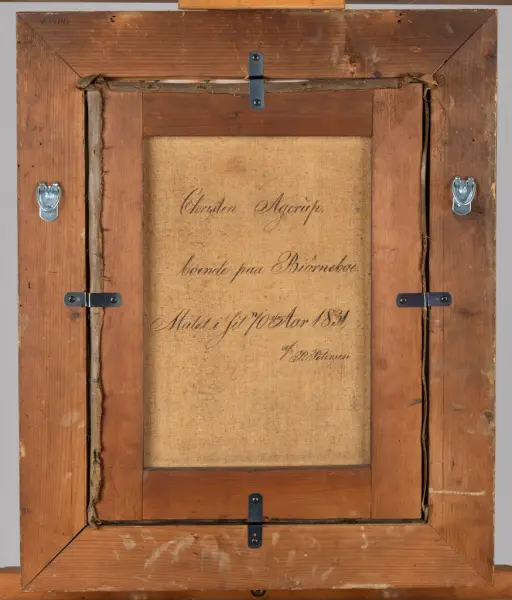 Christen Agerup,
boende paa Biörneboe
Malet i sit 70de Aar 1831,
af P. Petersen